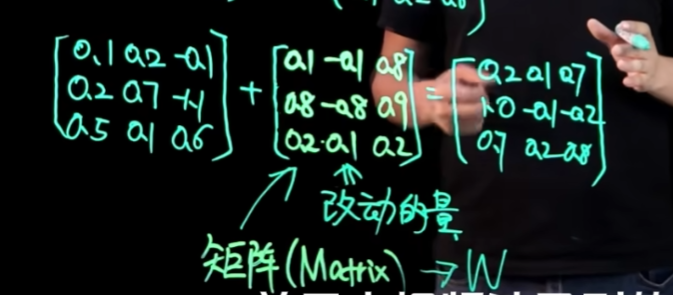 0.1 0.2 -0.1
0.2 0.7 -1.1
0.5 0.1 0.6
+
0.1 -0.1 0.8
0.8 -0.8 0.9
0.2 -0.1 0.2
=
0.2 0.1 0.7
1.0 -0.1 -0.2
0.7 0.2 0.8
改动的量
矩阵(Matrix) → W